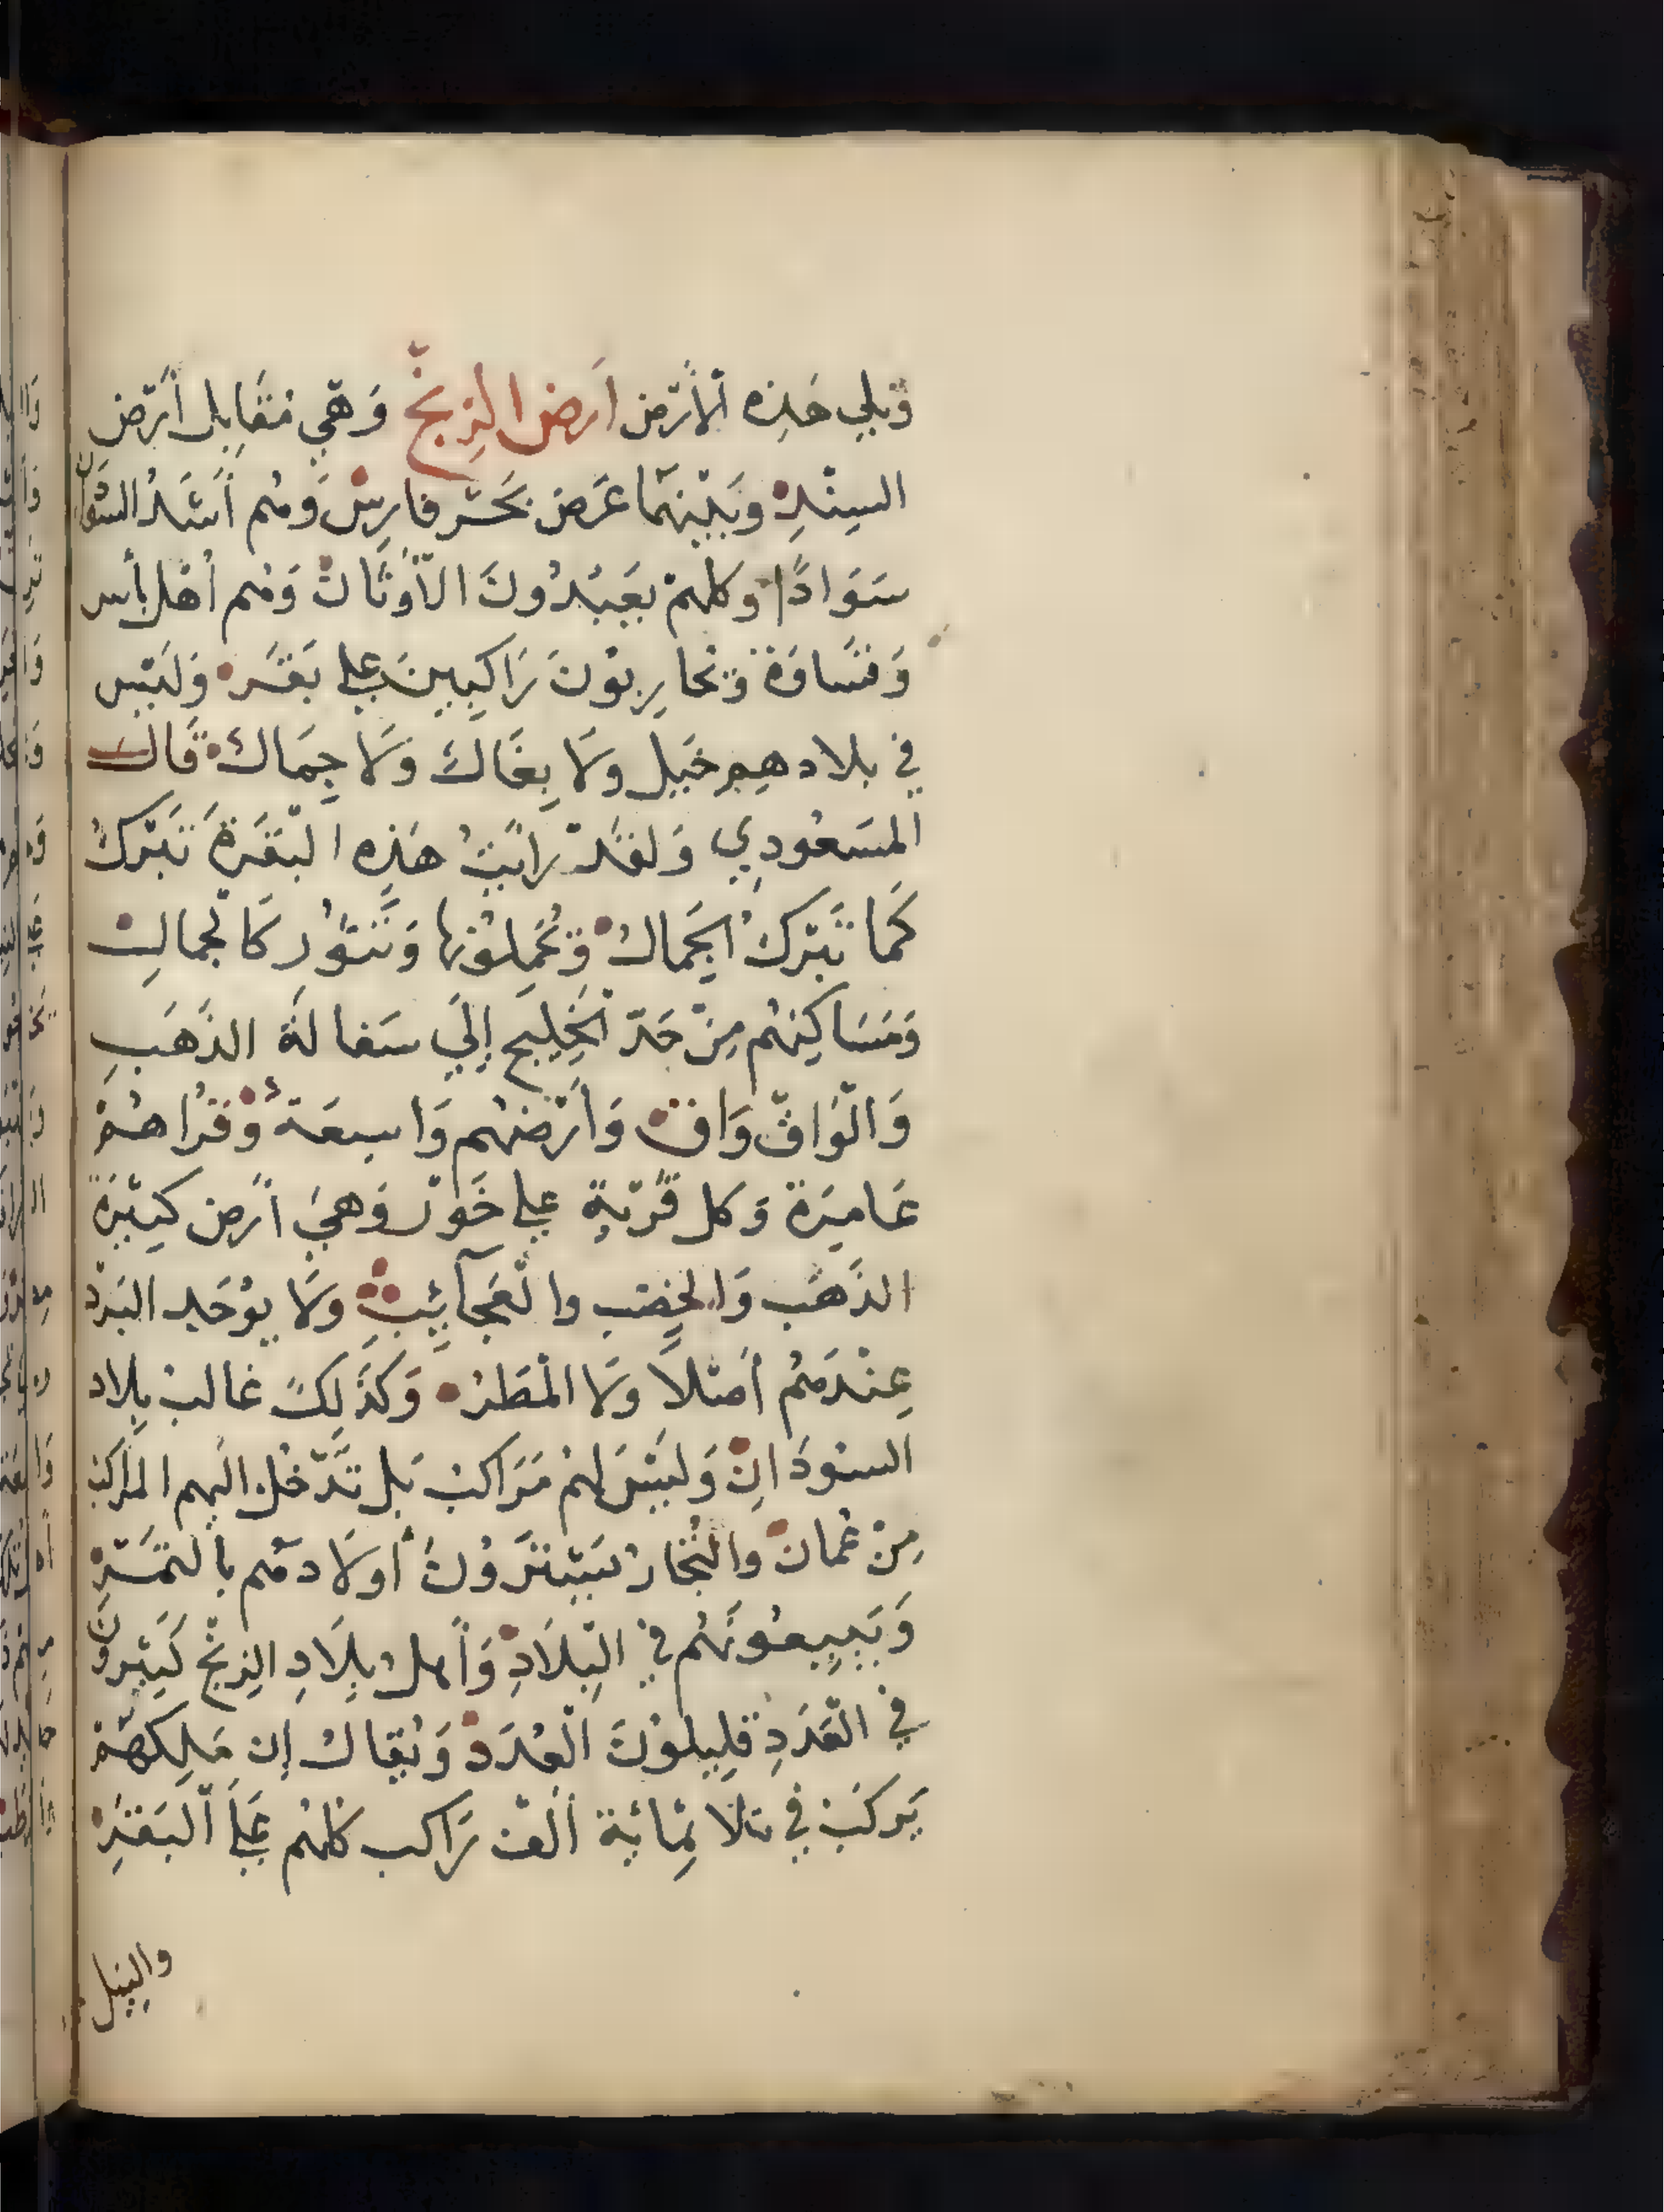 وَيلي هَذِه الأرْض أرض الزِنج وَهْي مُقَابِل أرْض
السِنْدِ وَبَيْنَهُمَا عَرْض بَحْر فارِسْ وَهُم أشَدُ السُودَانِ
سَوَادًا وكلهمْ يَعْبُدُونَ الأوْثَانْ وَهُم أهْل بأس
وَقسَاوَة وَيحَارِبُونَ رَاكِبِينَ علي بَقَرْ وَلَيْس
في بلادهِم خَيل ولَا بِغَال وَلَا جِمَال قَال
المسَعُودِي وَلقَدْ رايْتُ هَذِه البَقَرَة تَبْرك
كَما تَبْرك الجَمال وَيُحَمِلُونها وَتَثُور كَالجمالِ
وَمَسَاكِنهُم مِنْ حَدّ الخِليج إلَي سَفالَة الذَهَبِ
وَالْوَاقْ وَاق وَأرْضهُم وَاسِعَة وْقُرُاهُمْ
عَامِرَة وَكل قَرْيَةٍ علي خَوْر وَهيَ أرْض كَثِيْرَة
الذَهَب وَالخِصْب والْعَجَآئِبْ ولَا يوُجَد البَرْد
عِنْدَهُم أصْلاً ولَا المْطَرْ وَكَذَلِكَ غالبْ بِلاد
السوُدَانِ وَليْسَ لهُم مَرَاكبْ بَل تَدْخُل اليهم المراكبْ
مِنْ عُمانْ والتُجَار يَشْتَرُونَ أولَادهُم بالتَمْر
وَيَبِيعُونَهُم في البِلَادِ وَأهل بِلَادِ الزِنْج كَثِيرُونْ
في العَدَدِ قلِيلوُنَ العُدَدْ وَيُقال إن مَلِكهُمْ
يَركَبْ في ثلَا ثِمائَة ألفْ رَاكب كلهُم عَلَي البَقَرِ
والنِيل